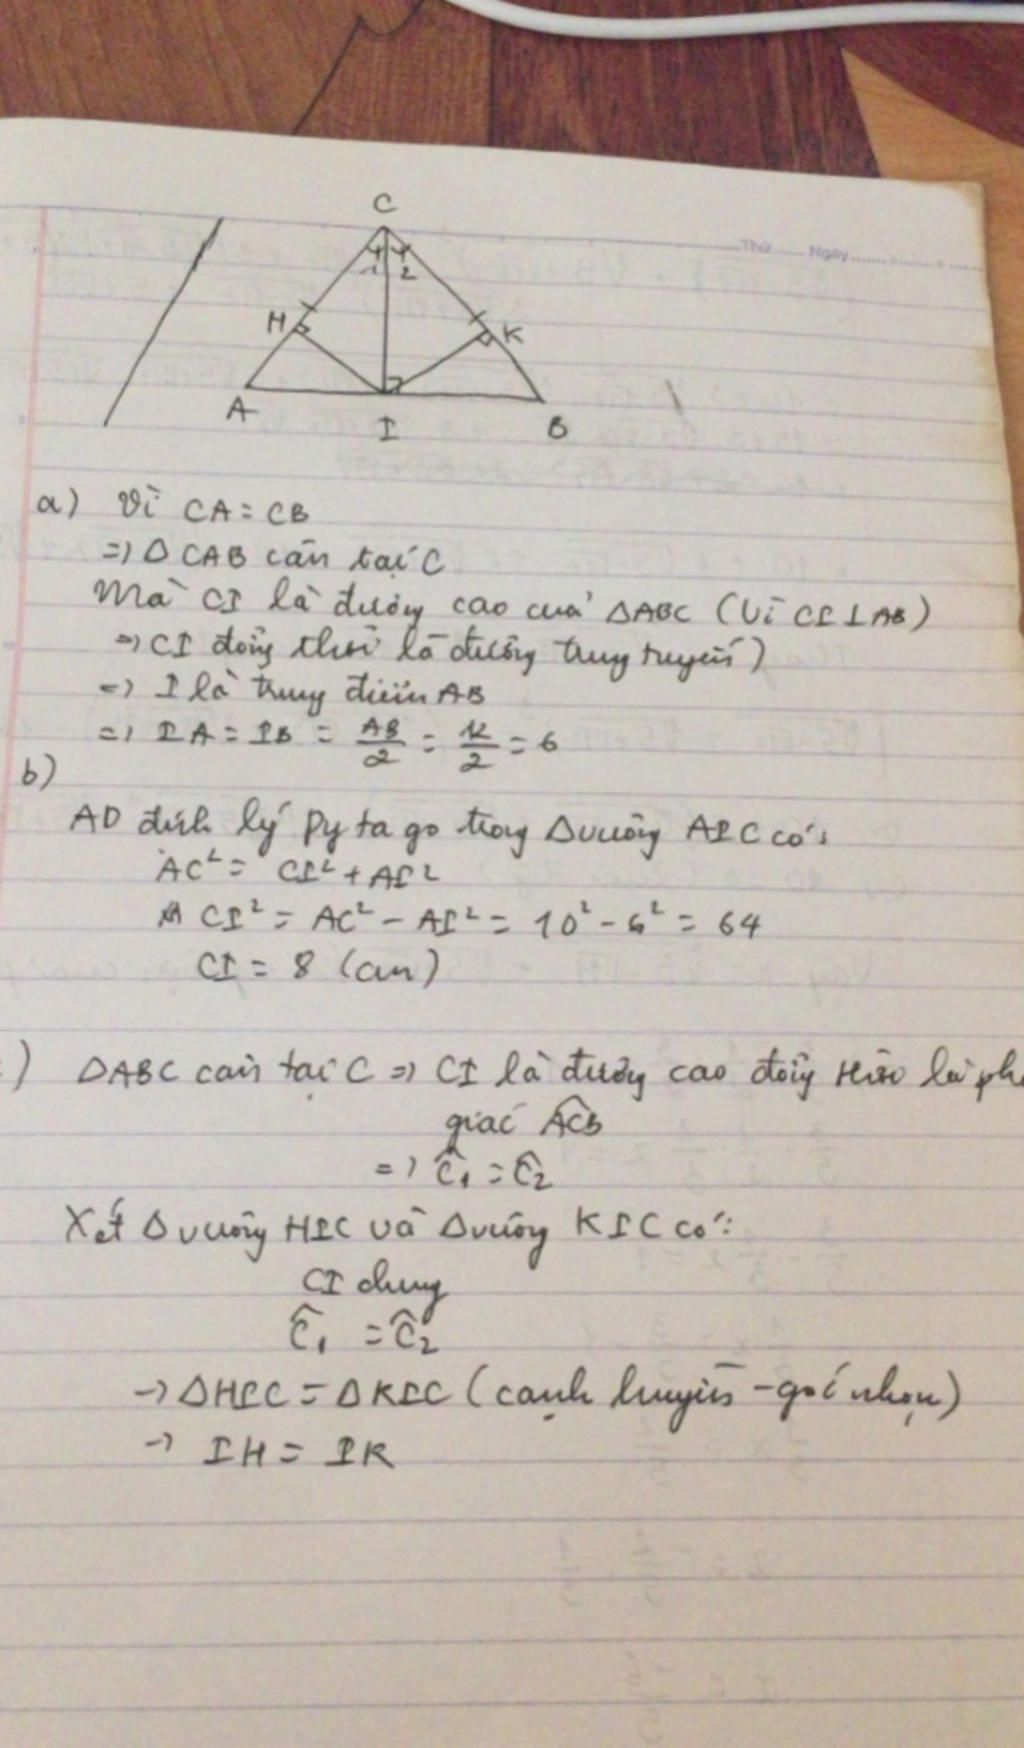 Thứ ..... Ngày ..............
C
1 2
H K
A I B
a) Vì CA = CB
=> Δ CAB cân tại C
Mà CI là đường cao của ΔABC (Vì CI ⊥ AB)
=> CI đồng thời là đường trung tuyến)
=> I là trung điểm AB
=> IA = IB = AB/2 = 12/2 = 6
b)
AD định lý Py ta go trong Δ vuông AIC có:
AC² = CI² + AI²
CI² = AC² - AI² = 10² - 6² = 64
CI = 8 (cm)
) ΔABC cân tại C => CI là đường cao đồng thời là ph
giác ACB
=> Ĉ₁ = Ĉ₂
Xét Δ vuông HIC và Δ vuông KIC có:
CI chung
Ĉ₁ = Ĉ₂
-> ΔHIC = ΔKIC (cạnh huyền - góc nhọn)
-> IH = IK